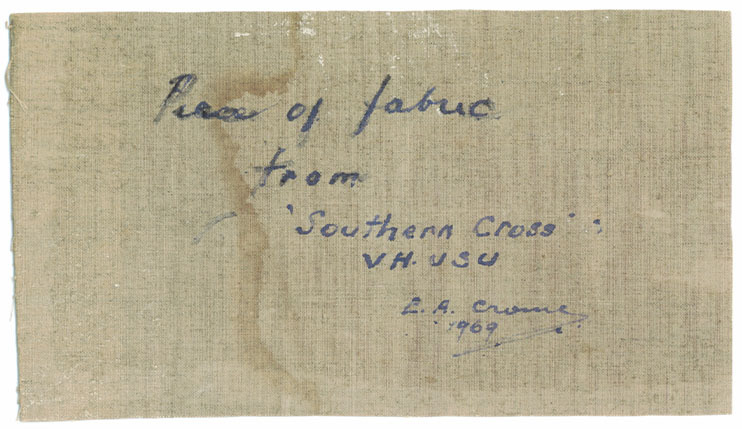 Piece of fabric
from
'Southern Cross'.
VH.USU
E. A. Crome
1969